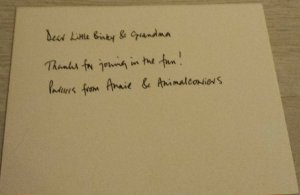 Dear Little Binky & Grandma
Thanks for joining in the fun!
from Annie & Animalcouriers